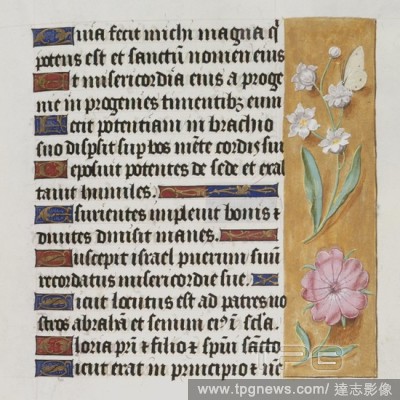 Quia fecit michi magna q̄
potens est et sanctū nomen eius
Et misericordia eius a proge
nie in progenies timentibz eum
Fecit potentiam in brachio
suo dispsit supbos mēte cordis sui
Deposuit potentes de sede et exal
tauit humiles.
Esurientes impleuit bonis &
diuites dimisit inanes.
Suscepit israel puerum suū
recordatus misericordie sue.
Sicut locutus est ad patres no
stros abrahā et semini eiꝰ ī scła.
Gloria pri & filio & spūi sācto
Sicut erat in principio & nē
TPG
www.tpgnews.com / 達志影像